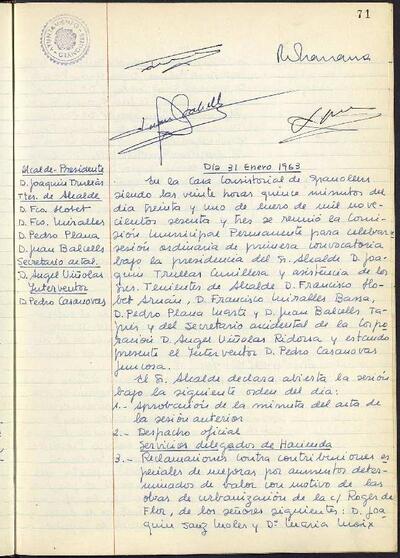 71
AYUNTAMIENTO
GRANOLLERS
Día 31 Enero 1963
Alcalde-Presidente
D. Joaquín Trullás
Ttes. de Alcalde
D. Fco. Llobet
D. Fco. Miralles
D. Pedro Plana
D. Juan Balcells
Secretario actal.
D. Angel Viñolas
Interventor
D. Pedro Casanovas
En la Casa Consistorial de Granollers
siendo las veinte horas quince minutos del
día treinta y uno de Enero de mil nove-
cientos sesenta y tres se reunió la Comi-
sión Municipal Permanente para celebrar
sesión ordinaria de primera convocatoria
bajo la presidencia del Sr. Alcalde D. Joa-
quín Trullás y asistencia de los
Sres. Tenientes de Alcalde D. Francisco Llo-
bet Arnán, D. Francisco Miralles Bassa,
D. Pedro Plana Martí y D. Juan Balcells Ta-
y del Secretario accidental de la Corpo-
ración D. Angel Viñolas Ridorsa y estando
presente el Interventor D. Pedro Casanovas
Juncosa.
El Sr. Alcalde declara abierta la sesión
bajo la siguiente orden del día:
1.- Aprobación de la minuta del acta de
la sesión anterior
2.- Despacho oficial
Servicios delegados de Hacienda
3.- Reclamaciones contra contribuciones es-
peciales de mejoras por aumentos deter-
minados de valor con motivo de las
obras de urbanización de la c/ Roger de
Flor, de los señores siguientes: D. Joa-
quín Sanz Moles y Dª María Moix